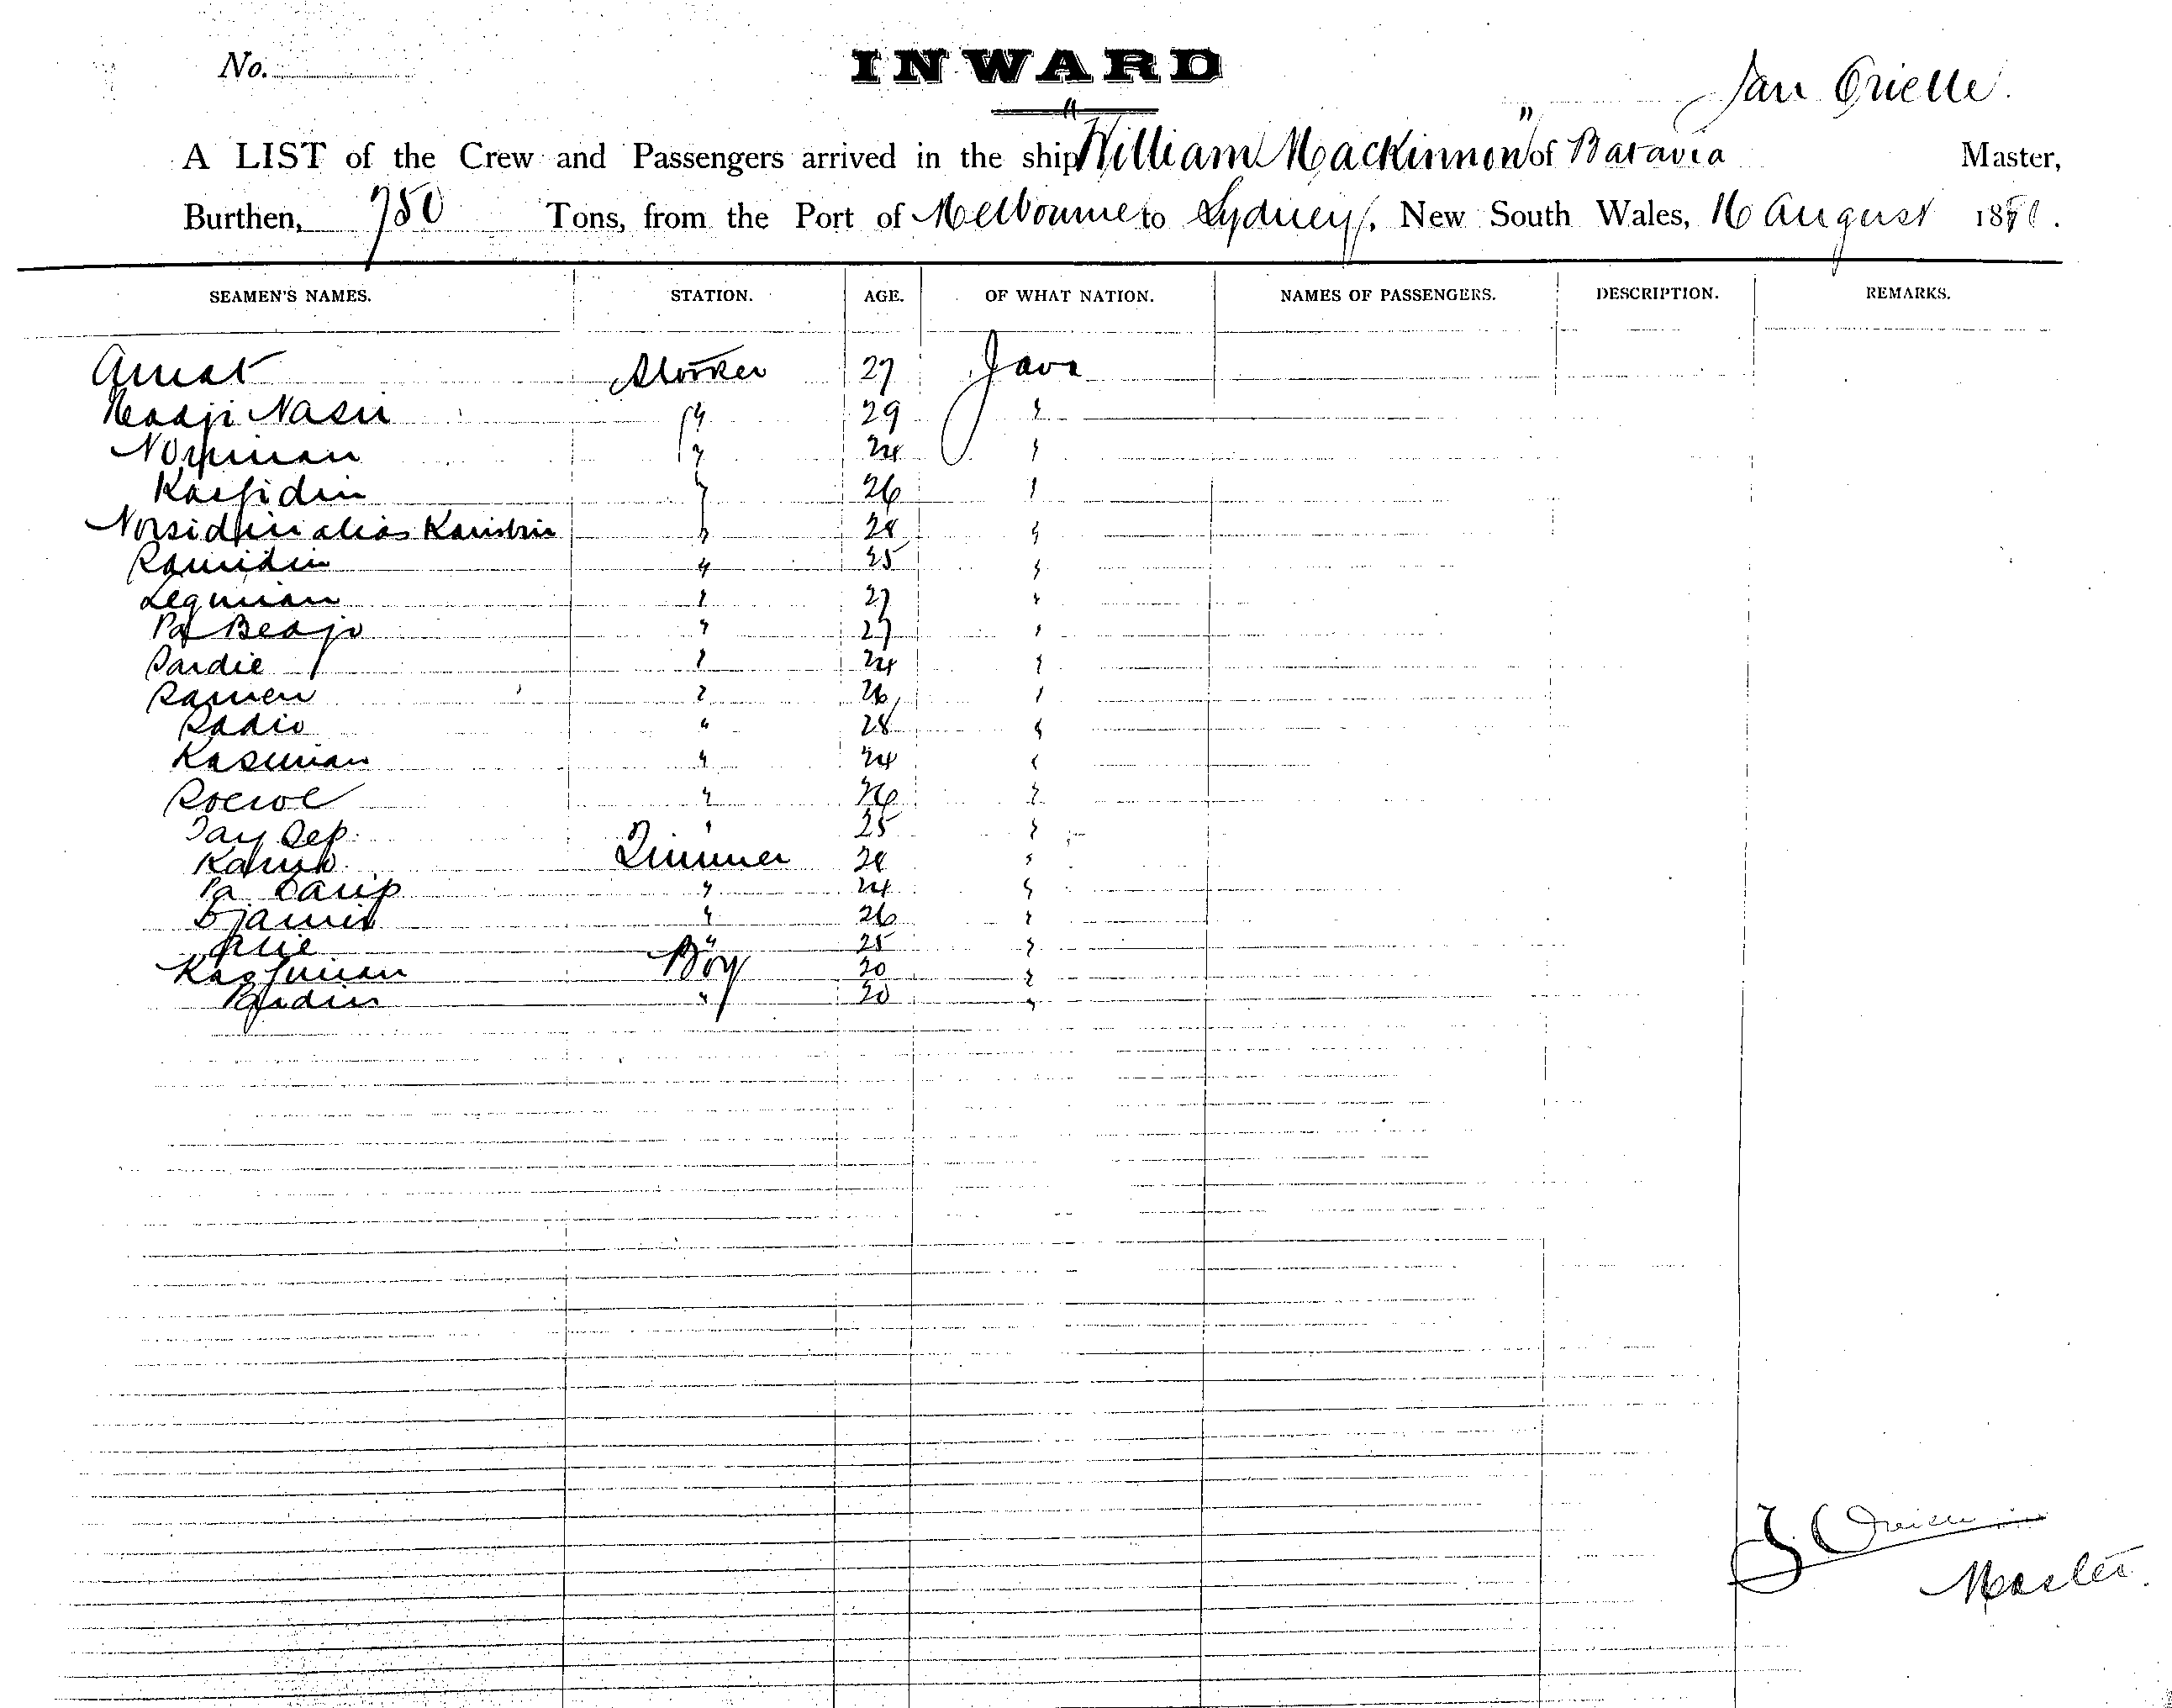 No.
INWARD
Jan Orielle.
A LIST of the Crew and Passengers arrived in the ship "William Mackinnon" of Batavia Master,
Burthen, 750 Tons, from the Port of Melbourne to Sydney, New South Wales, 16 August 18
SEAMEN'S NAMES. STATION. AGE. OF WHAT NATION. NAMES OF PASSENGERS. DESCRIPTION. REMARKS.
Amat Stoker 27 Java
Hadji Nasir " 29 "
Norman " 24 "
Kassidin " 26 "
Norsidin alias " 28 "
Ramidin " 25 "
Legiman " 27 "
Pa Beajo " 27 "
Sardie " 24 "
Ramen " 26 "
Radio " 28 "
Kasman " 24 "
" 26 "
Tay Sep. " 25 "
Trimmer 28 "
Pa Sarip " 24 "
Djamin " 26 "
Alie " 25 "
Boy 20 "
" 20 "
J. Orielle
Master.